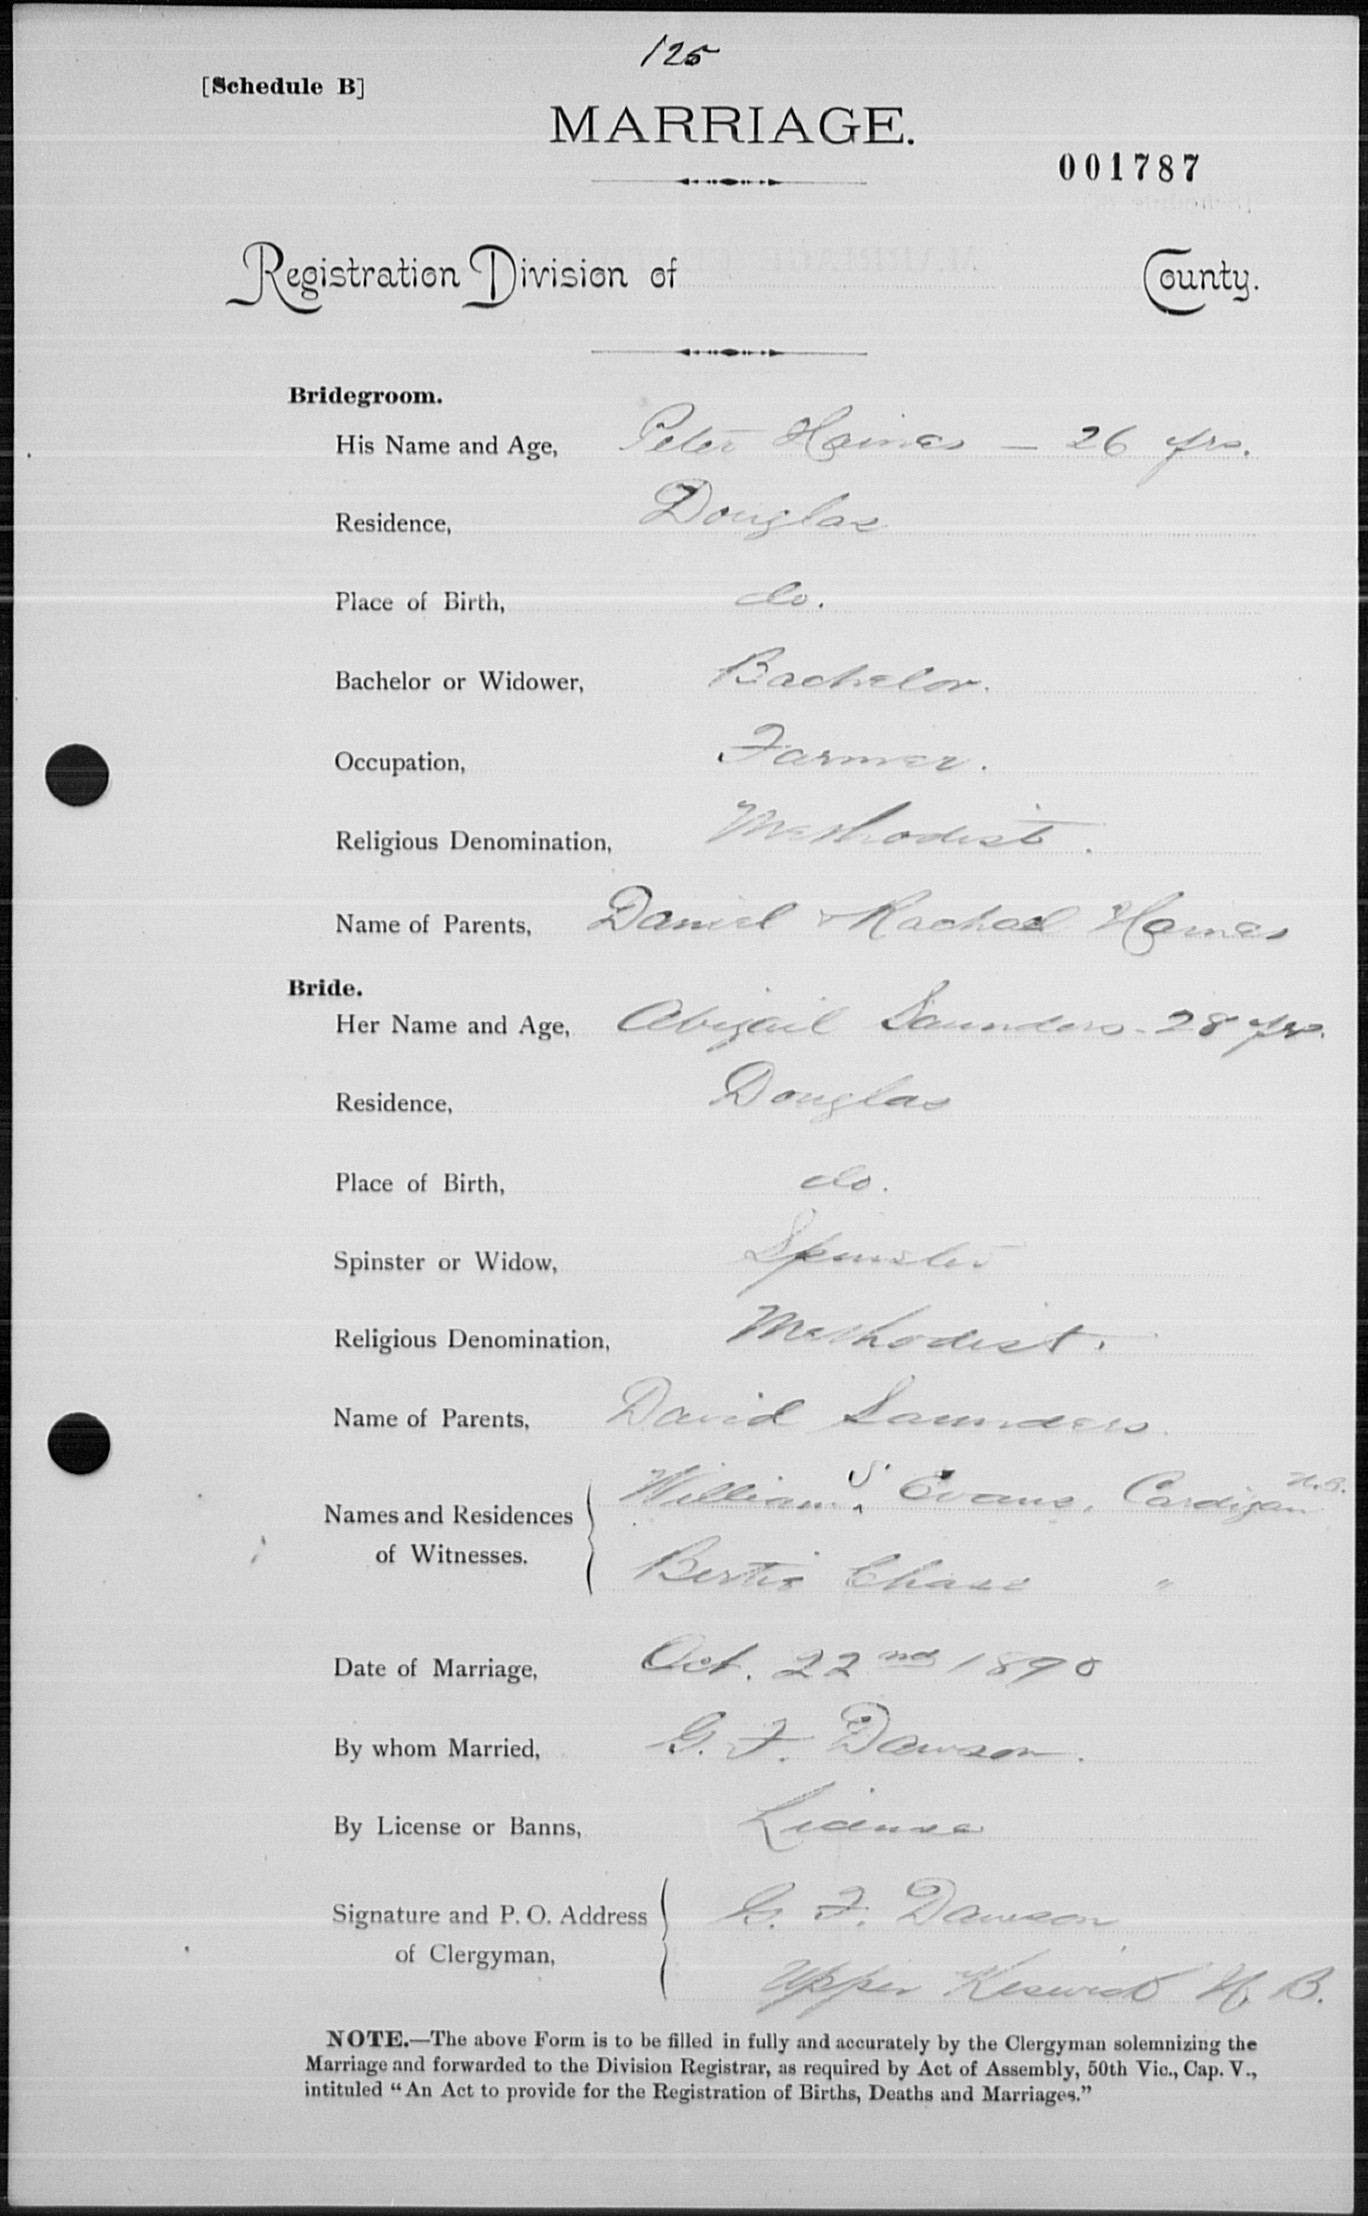 125
[Schedule B]
MARRIAGE.
001787
Registration Division of County.
Bridegroom.
His Name and Age, Peter Haines — 26 yrs.
Residence, Douglas
Place of Birth, do.
Bachelor or Widower, Bachelor.
Occupation, Farmer.
Religious Denomination, Methodist.
Name of Parents, Daniel & Rachael Haines
Bride.
Her Name and Age, Abigail Saunders - 28 yrs.
Residence, Douglas
Place of Birth, do.
Spinster or Widow, Spinster
Religious Denomination, Methodist.
Name of Parents, David Saunders.
Names and Residences of Witnesses. William S. Evans, Cardigan N.B.
Bertie Chase "
Date of Marriage, Oct. 22nd 1890
By whom Married, G. F. Dawson.
By License or Banns, License
Signature and P. O. Address of Clergyman, G. F. Dawson
Upper Keswick N. B.
NOTE.—The above Form is to be filled in fully and accurately by the Clergyman solemnizing the
Marriage and forwarded to the Division Registrar, as required by Act of Assembly, 50th Vic., Cap. V.,
intituled “An Act to provide for the Registration of Births, Deaths and Marriages.”